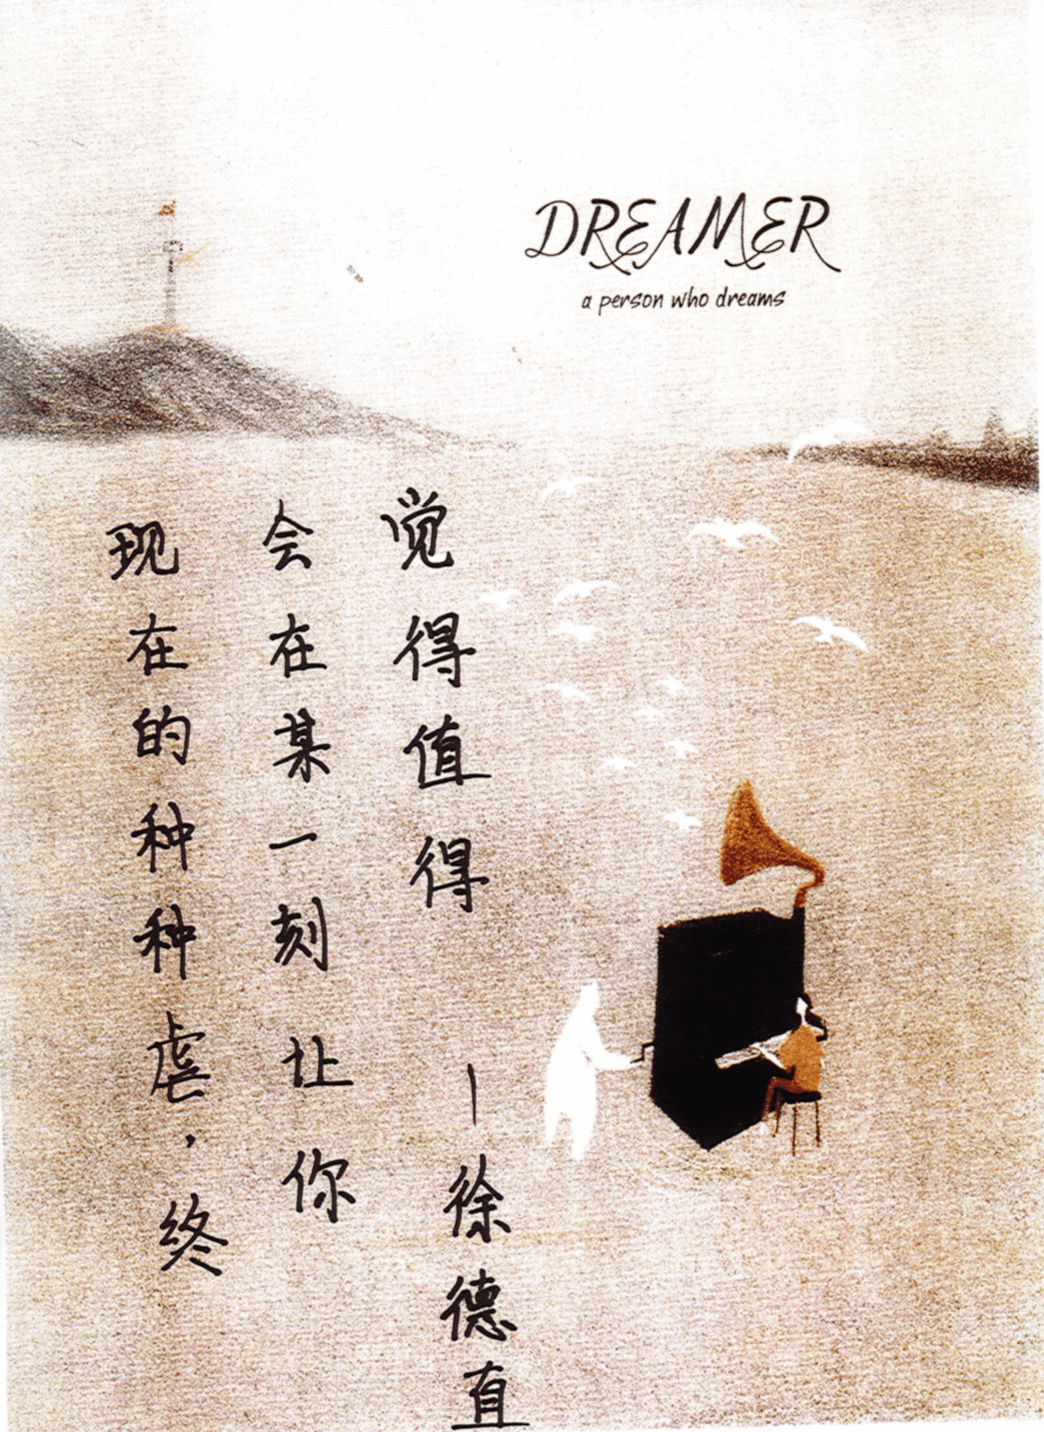 DREAMER
a person who dreams
现在的种种虐，终
会在某一刻让你
觉得值得
—徐德直